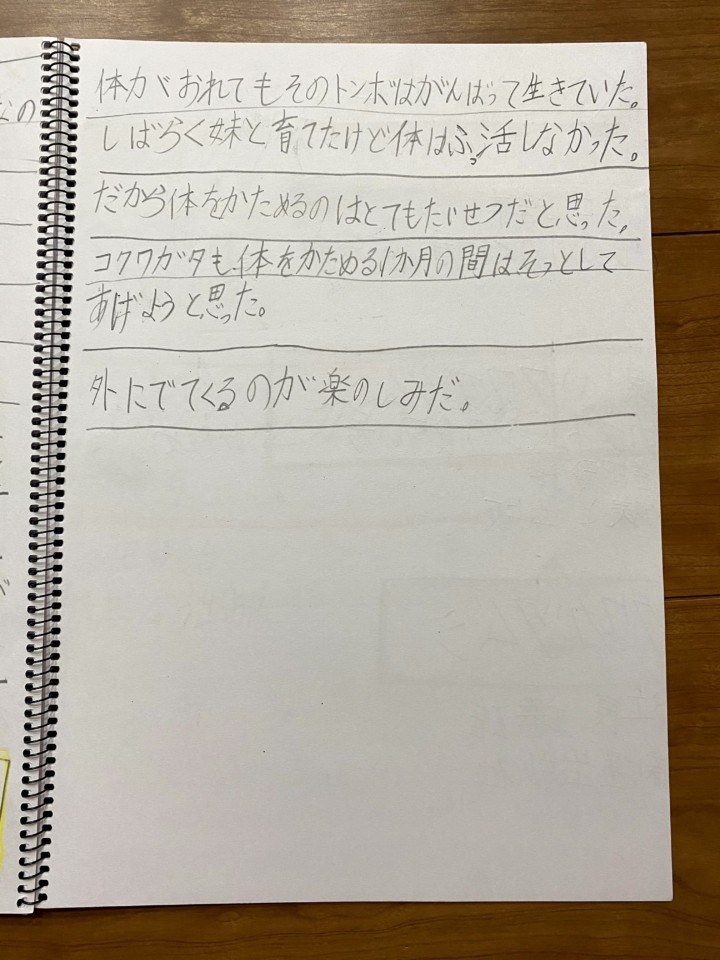 なの
体がおれてもそのトンボはがんばって生きていた。
しばらく妹と育てたけど体はふっ活しなかった。
だから体をかためるのはとてもたいせつだと思った。
コクワガタも体をかためる1か月の間はそっとして
あげようと思った。
外にでてくるのが楽のしみだ。